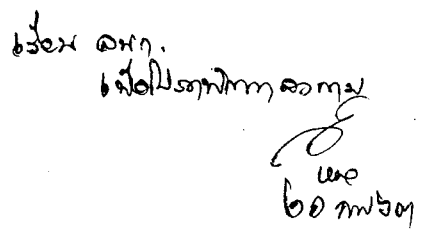 เรียน ลนก.
เพื่อโปรดพิจารณาลงนาม
๒๐ กพ ๖๓